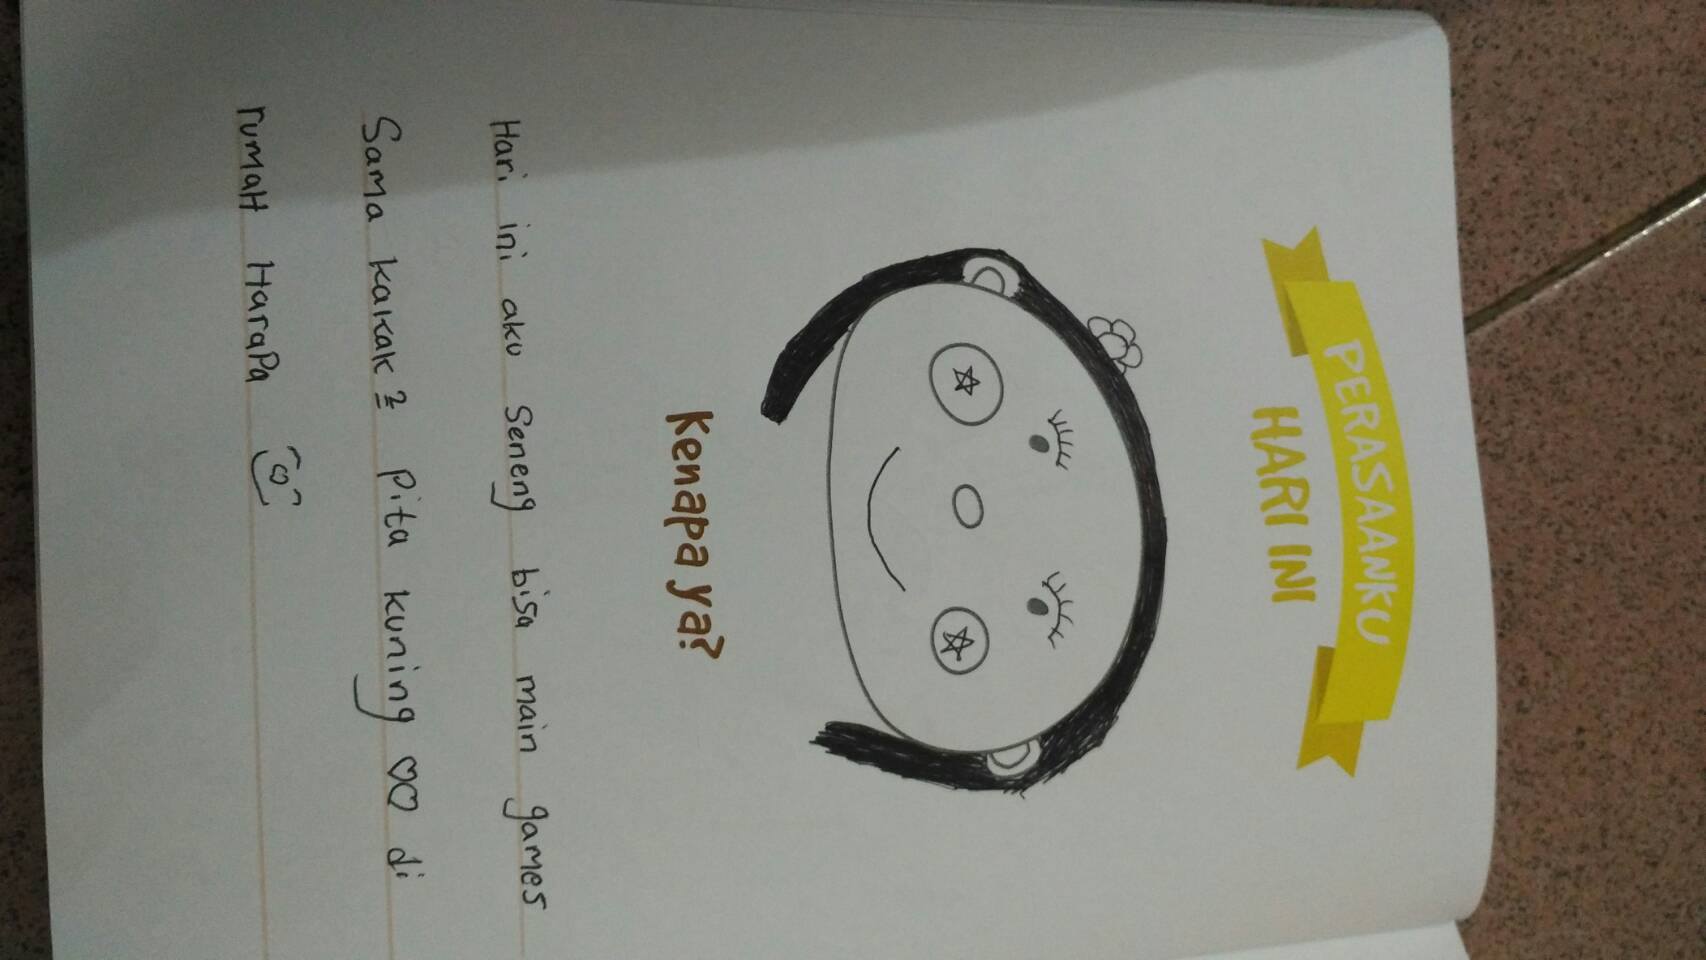 PERASAANKU
HARI INI
Kenapa ya?
Hari ini aku Seneng bisa main games
Sama kakak2 pita kuning ♡♡ di
rumaH HaraPa